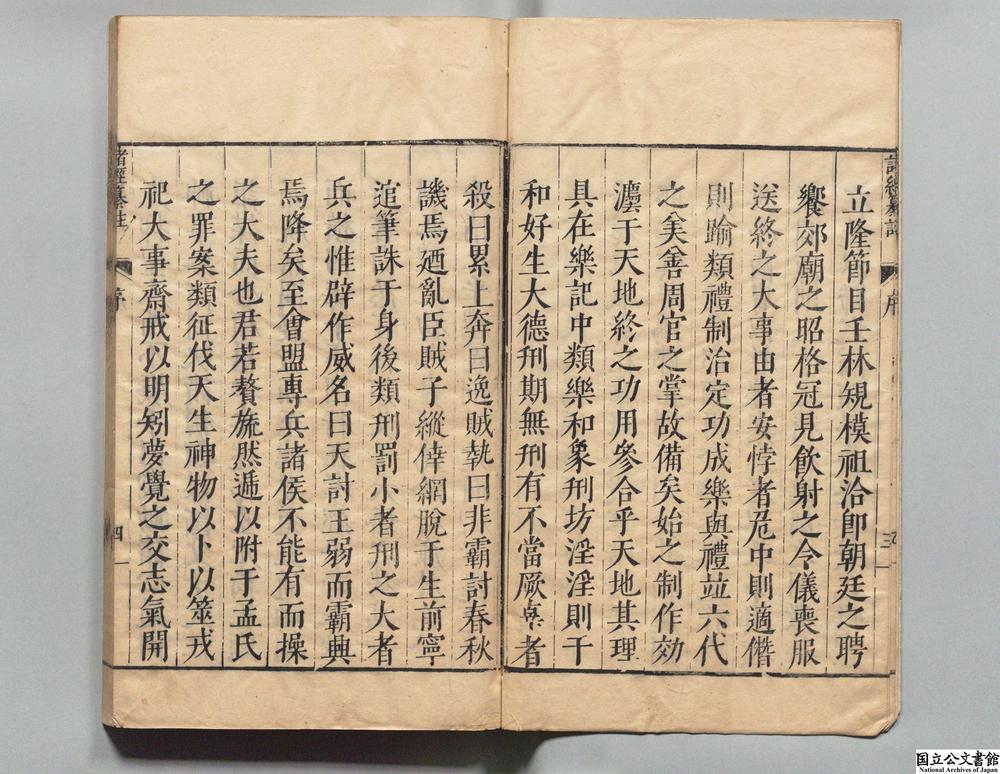 諸經纂註
序
三
立隆節目壬林䂓模祖洽卽朝廷之聘
饗郊廟之昭格冠見飲射之令儀喪服
送終之大事由者安悖者危中則適僭
則踰類禮制治定功成樂與禮竝六代
之美善周官之掌故備矣始之制作効
灋于天地終之功用參合乎天地其理
具在樂記中類樂和象刑坊淫淫則干
和好生大德刑期無刑有不當厥辜者
殺曰累上奔曰逸賊執曰非霸討春秋
譏焉廼亂臣賊子縱倖網脫于生前寧
逭筆誅于身後類刑罰小者刑之大者
兵之惟辟作威名曰天討王弱而霸興
焉降矣至會盟專兵諸侯不能有而操
之大夫也君若贅旒然遞以附于孟氏
之罪案類征伐天生神物以卜以筮戎
祀大事齋戒以明矧夢覺之交志氣開
諸經纂註
序
四
国立公文書館
National Archives of Japan